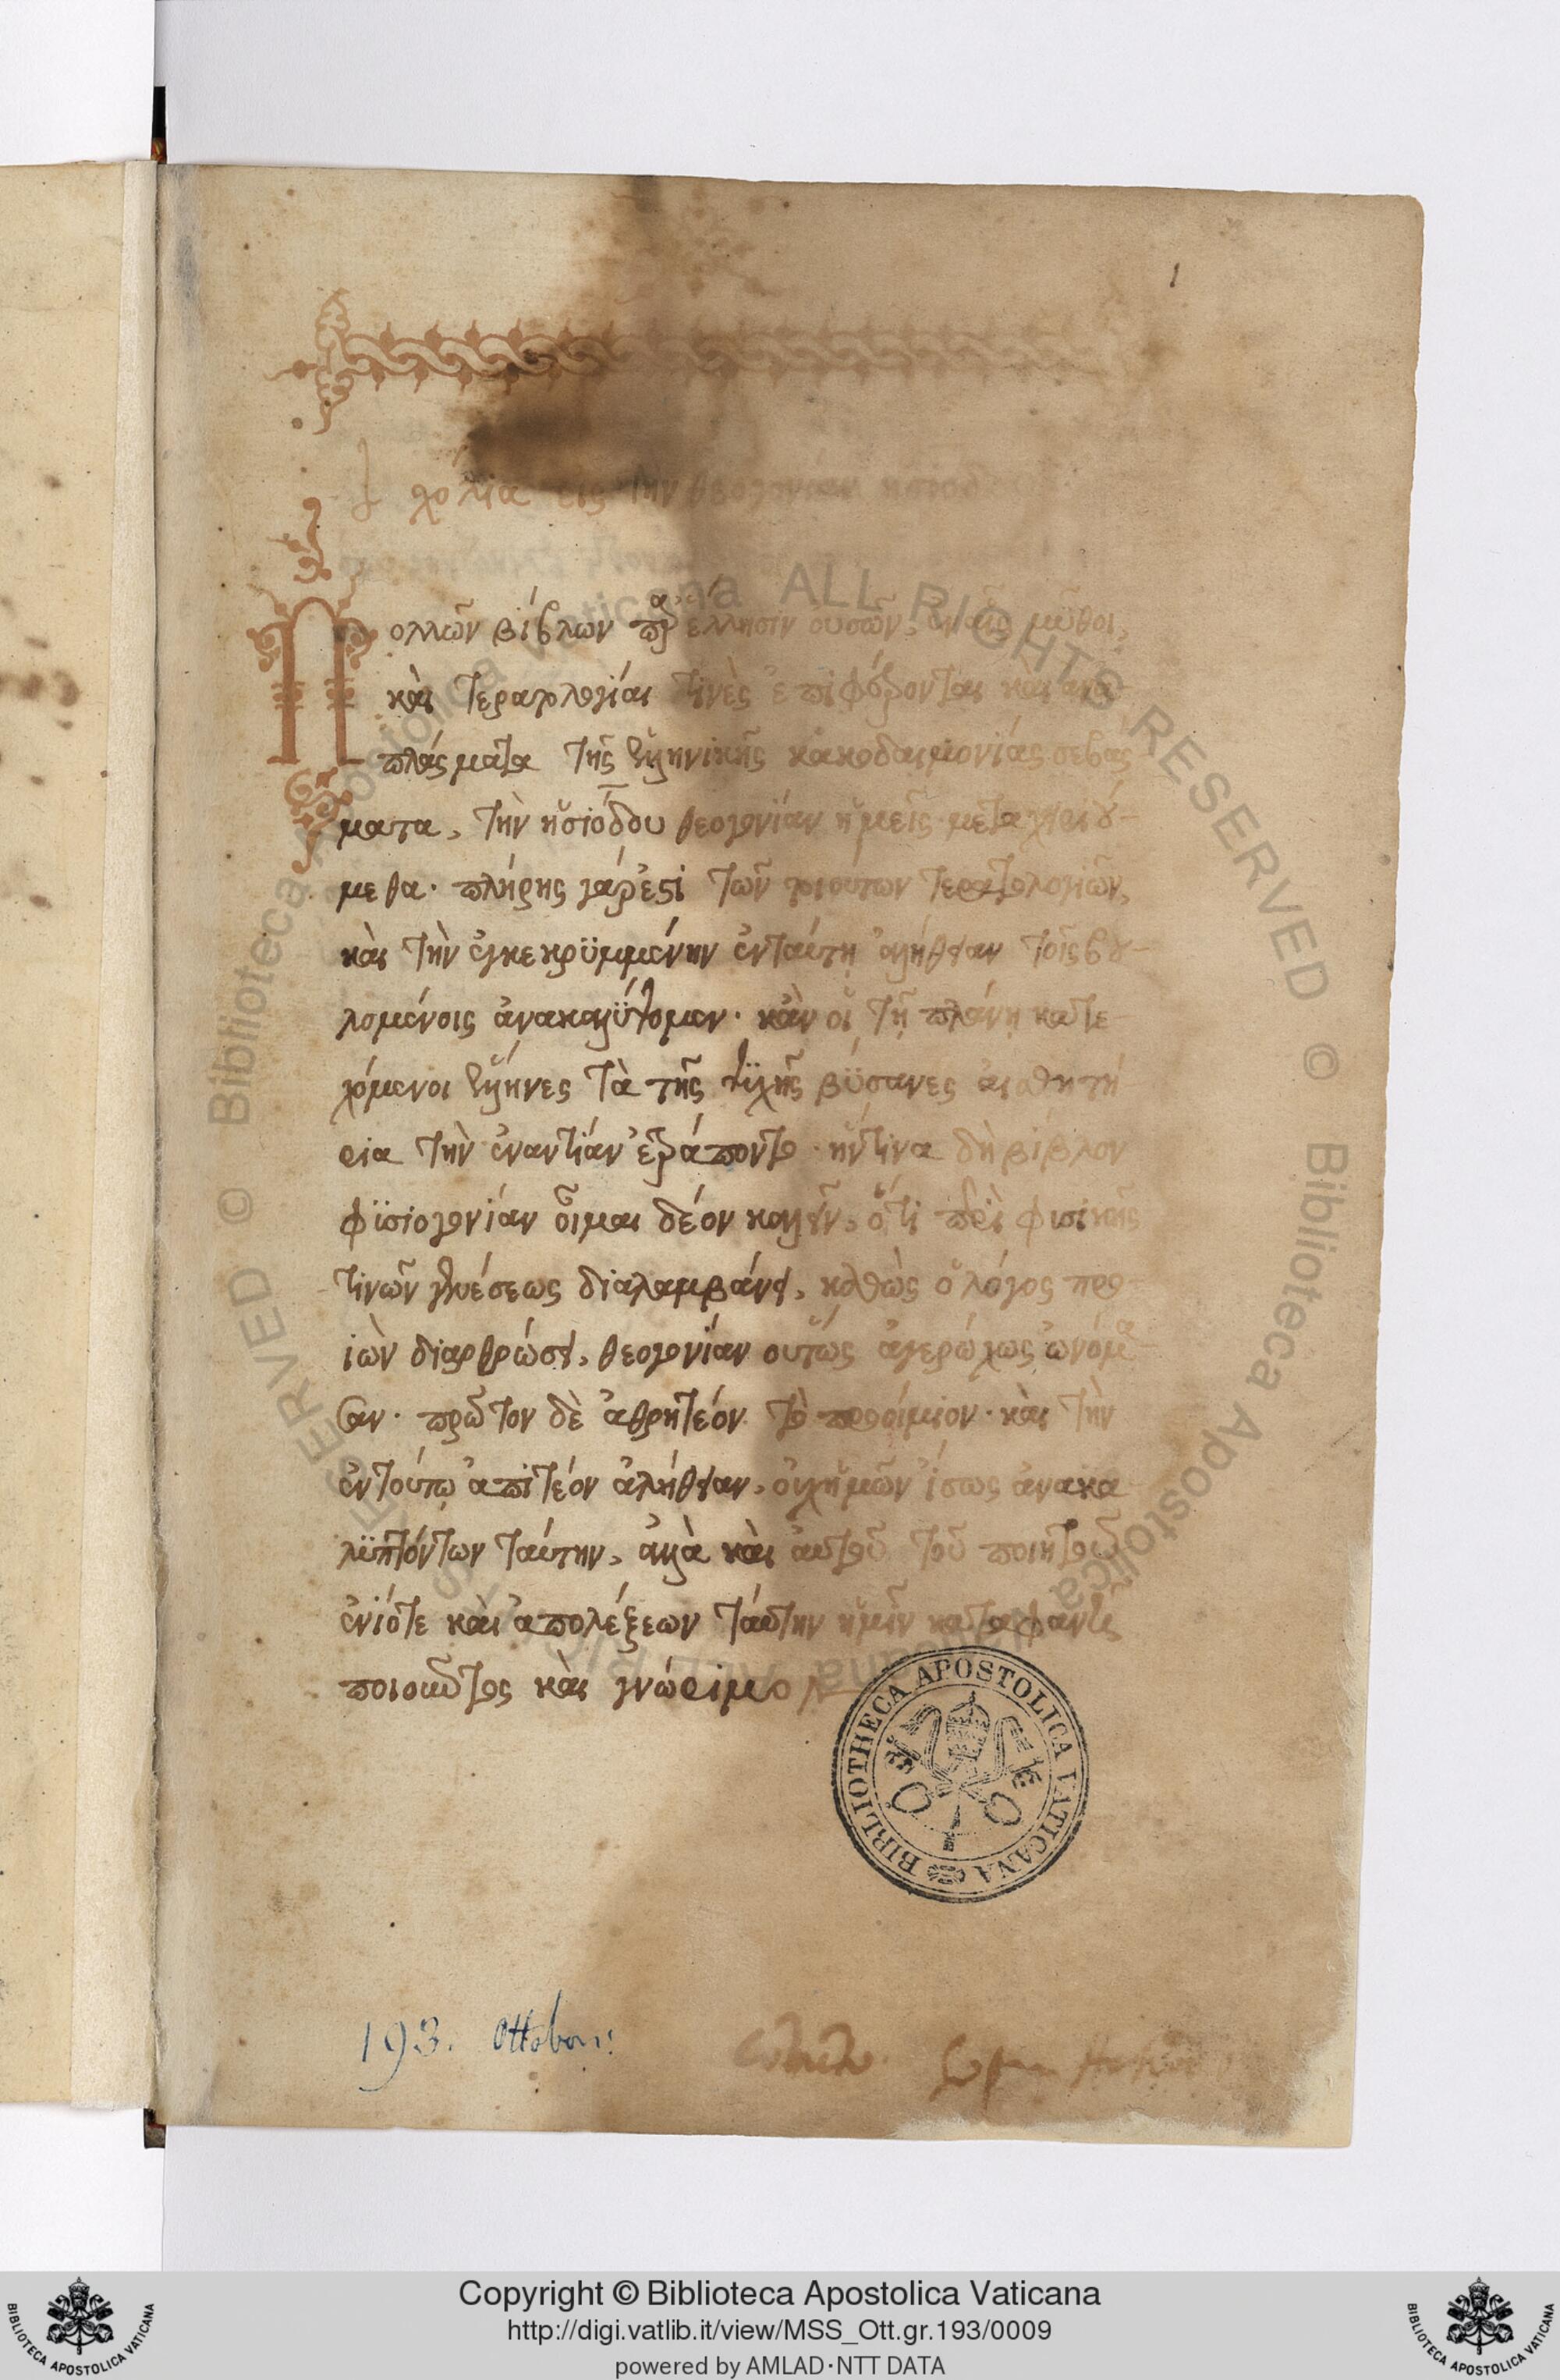 1
Σχόλια εἰς τὴν θεογονίαν ἡσιόδ
Πολλῶν βίβλων παρ' ἕλλησιν οὐσῶν, ἐν αἷς μῦθοι,
καὶ τερατολογίαι τινὲς ἐπιφέρονται καὶ ἀνα
πλάσματα τῆς ἑλληνικῆς κακοδαιμονίας σεβάς
ματα, τὴν ἡσιόδου θεογονίαν ἡμεῖς μεταχειρού-
μεθα· πλήρης γάρ ἐστι τῶν τοιούτων τερατολογιῶν,
καὶ τὴν ἐγκεκρϋμμένην ἐν ταύτῃ ἀλήθειαν τοῖς βου-
λομένοις ἀνακαλΰψομεν· κἂν οἱ τῇ πλάνῃ κατε
χόμενοι ἕλληνες τὰ τῆς ψϋχῆς βύσανες αἰσθητή
ρια τὴν ἐναντίαν ἐτράποντο· ἥντινα δὴ βίβλον
φϋσιογονίαν οἶμαι δέον καλεῖν, ὅτι περὶ φυσικῆς
τινῶν γενέσεως διαλαμβάνει, καθὼς ὁ λόγος προ
ϊὼν διαρθρώσει, θεογονίαν οὕτως ἀγερώχως ὠνόμα
σαν· πρῶτον δὲ ἀθρητέον τὸ προοίμιον· καὶ τὴν
ἐν τούτῳ ἀπιτέον ἀλήθειαν, οὐχ ἡμῶν ἴσως ἀνακα
λϋπτόντων ταύτην, ἀλλὰ καὶ αὐτοῦ τοῦ ποιητοῦ
ἐνίοτε καὶ ἀπολέξεων ταύτην ἡμῖν καταφανῆ
ποιοῦντος καὶ γνώριμον
BIBLIOTHECA APOSTOLICA VATICANA
193. Ottobon:
© Biblioteca Apostolica Vaticana ALL RIGHTS RESERVED
© Biblioteca Apostolica Vaticana ALL RIGHTS RESERVED
Copyright © Biblioteca Apostolica Vaticana
http://digi.vatlib.it/view/MSS_Ott.gr.193/0009
powered by AMLAD·NTT DATA
BIBLIOTECA APOSTOLICA VATICANA
BIBLIOTECA APOSTOLICA VATICANA